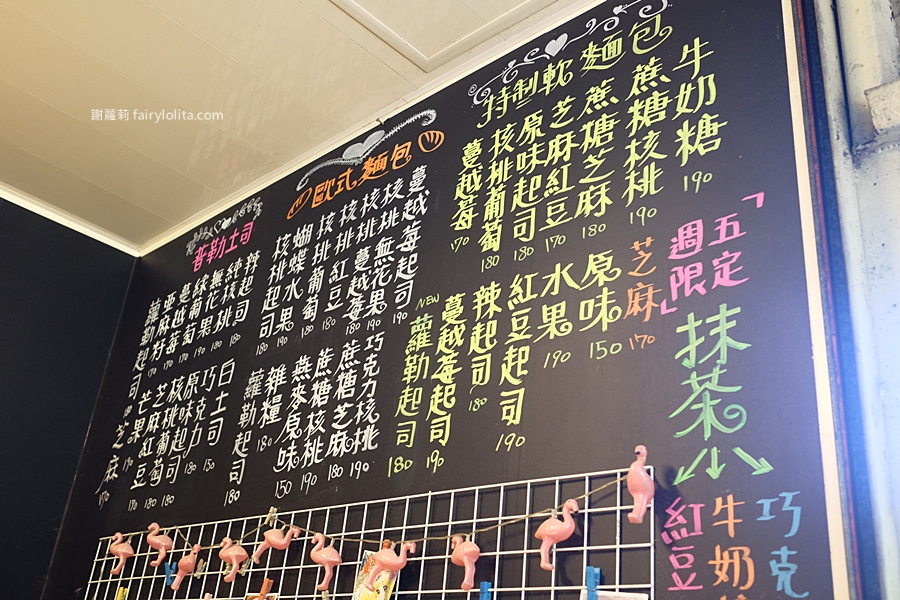 謝蘿莉 fairylolita.com
特制軟麵包
牛奶糖 190
蔗糖核桃 190
蔗糖芝麻 180
芝麻紅豆 170
原味起司 180
核桃葡萄 180
蔓越莓 170
芝麻 170
原味 150
水果 190
紅豆起司 190
辣起司 180
蔓越莓起司 190
NEW
蘿勒起司 180
歐式麵包
蔓越莓起司 190
核桃無花果 190
核桃蔓越莓 190
核桃紅豆 180
核桃葡萄 180
蝴蝶水果 190
核桃起司 190
巧克力核桃 190
蔗糖芝麻 180
蔗糖核桃 190
燕麥原味 150
雜糧 180
蘿勒起司 180
哲勒土司
辣起司 180
純核桃 180
無花果 190
綜葡萄 170
蔓越莓 170
蘿勒起司 180
白土司 150
巧克力 180
原味起司 180
核桃葡萄 180
芝麻紅豆 180
芒果 170
芝麻 170
週五限定
抹茶
紅豆
牛奶
巧克